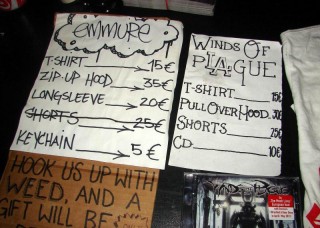 emmure
T-SHIRT 15€
ZIP-UP HOOD 35€
LONGSLEEVE 20€
SHORTS 25€
KEYCHAIN 5€
WINDS OF
PLAGUE
T-SHIRT 15€
PULLOVER HOOD. 30€
SHORTS 25€
CD 10€
HOOK US UP WITH
WEED. AND A
GIFT WILL BE
WINDS OF PLAGUE